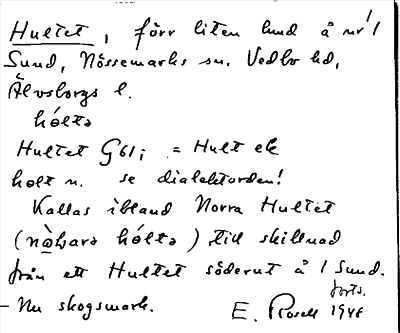 Hultet, förr liten lund å nr 1
Sund, Nössemarks sn. Vedbo hd,
Älvsborgs l.
hóltə
Hultet G61; = Hult ek
holt n. se dialektorden!
Kallas ibland Norra Hultet
(nàɷarə hóltə) till skillnad
från ett Hultet söderut å 1 Sund.
forts.
– Nu skogsmark.
E. Rosell 1946